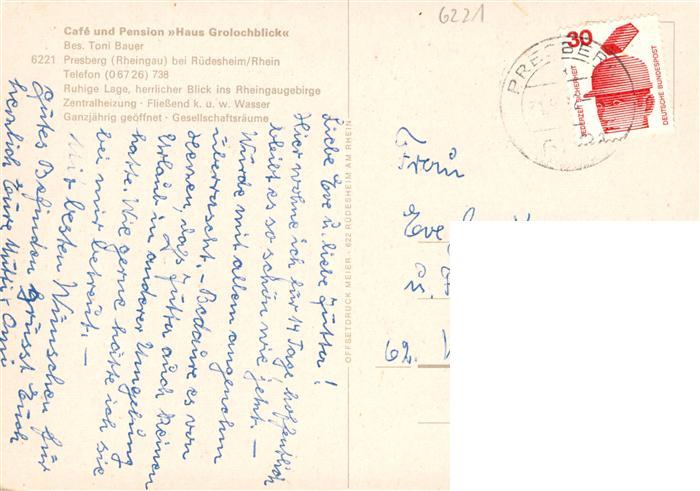 Café und Pension »Haus Grolochblick«
Bes. Toni Bauer
6221 Presberg (Rheingau) bei Rüdesheim/Rhein
Telefon (0 67 26) 738
Ruhige Lage, herrlicher Blick ins Rheingaugebirge
Zentralheizung · Fließend k. u. w. Wasser
Ganzjährig geöffnet · Gesellschaftsräume
Liebe Eve u. liebe Jutta!
Hier wohne ich für 14 Tage, hoffentlich
bleibt es so schön wie jetzt. –
Wurde mit allem angenehm
überrascht. – Bedaure es von
Herzen, daß Jutta auch keinen
Urlaub in anderer Umgebung
hatte. Wie gerne hätte ich sie
bei mir betreut. –
Mit besten Wünschen für
gutes Befinden grüsst Euch
herzlich Eure Mutti + Omi
OFFSETDRUCK MEIER · 622 RÜDESHEIM AM RHEIN
6221
30
JEDERZEIT SICHERHEIT
DEUTSCHE BUNDESPOST
Frau
Eve
u.
62.